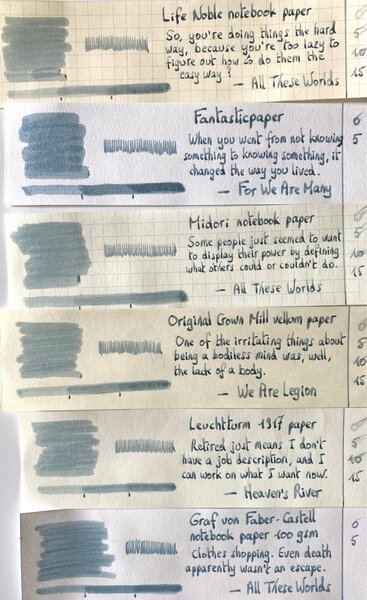 Life Noble notebook paper
So, you're doing things the hard
way, because you're too lazy to
figure out how to do them the
easy way?
— All These Worlds
5
10
15
Fantasticpaper
When you went from not knowing
something to knowing something, it
changed the way you lived.
— For We Are Many
0
5
Midori notebook paper
Some people just seemed to want
to display their power by defining
what others could or couldn't do.
— All These Worlds
0
5
10
15
Original Crown Mill vellum paper
One of the irritating things about
being a bodiless mind was, well,
the lack of a body.
— We Are Legion
0
5
10
15
Leuchtturm 1917 paper
Retired just means I don't
have a job description, and I
can work on what I want now.
— Heaven's River
0
5
10
15
Graf von Faber-Castell
notebook paper 100 gsm
Clothes shopping. Even death
apparently wasn't an escape.
— All These Worlds
0
5